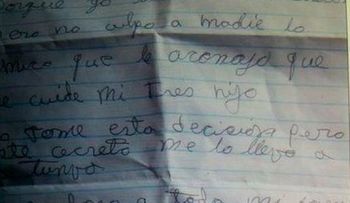 porque yo
pero no culpo a madie lo
unico que le aconsejo que
me cuide mi tres hijo
tome esta decision pero
este secreto me lo llevo a
tunva
todo mi